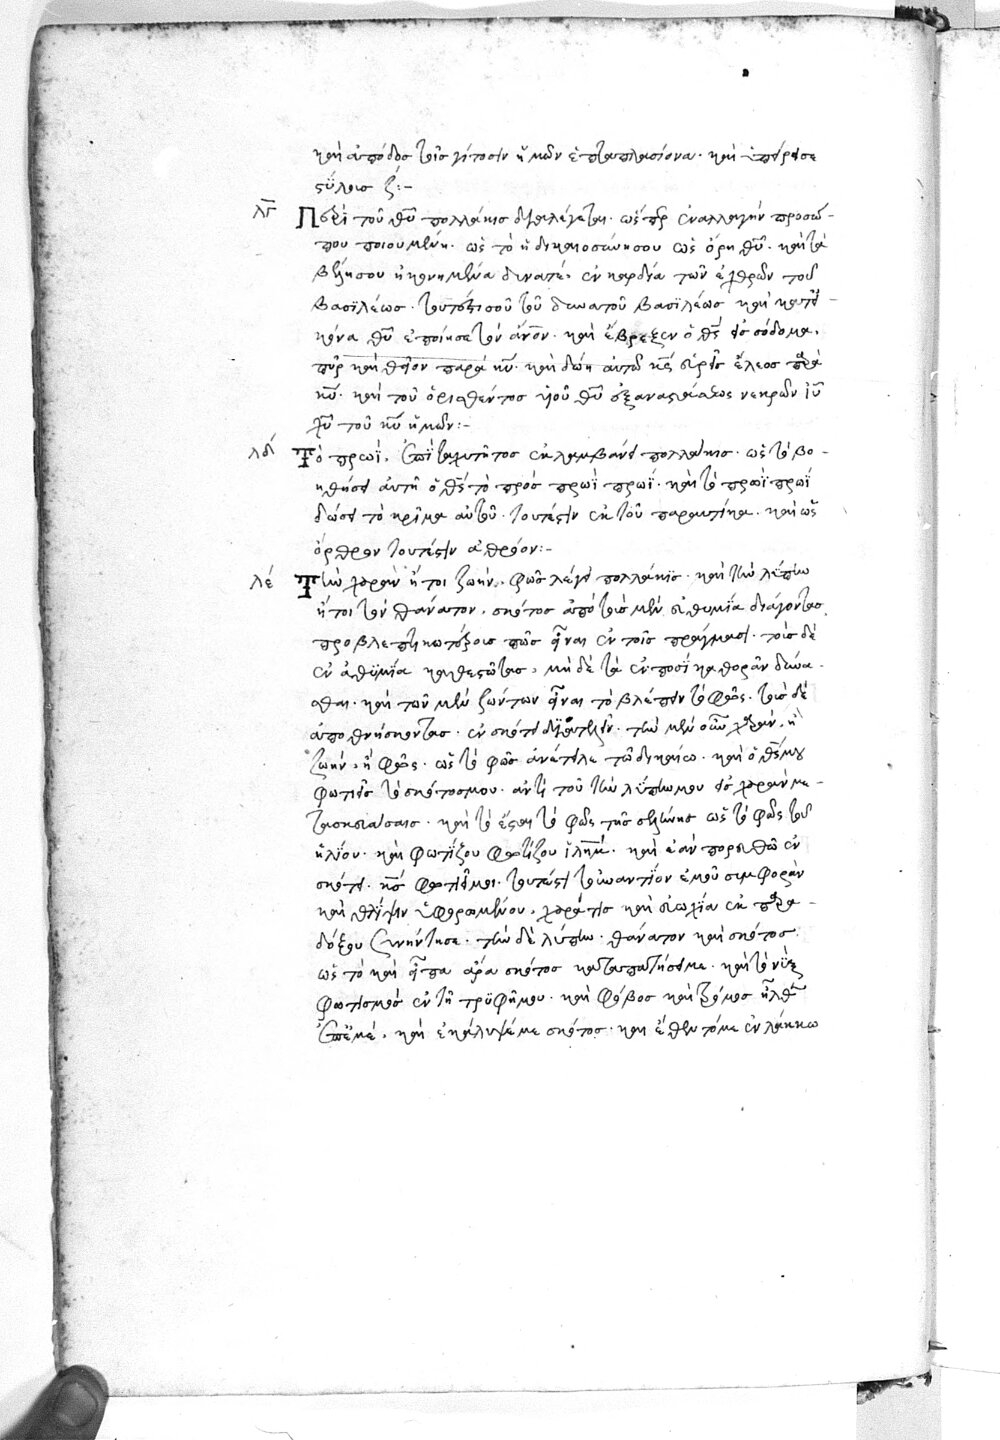 καὶ ἀπόδος τοῖς γείτοσιν ἡμῶν ἑπταπλασίονα· καὶ
στύλοις ζ:–
λγ Περὶ τοῦ θυ πολλάκις διαλέγεται· ὥσπερ ἐναλλαγὴν προσώ-
που ποιουμένη· ὡς τὸ ἡ δικαιοσύνη σου ὡς ὄρη θυ· καὶ τὰ
βέλη σου ἠκονημένα δυνατέ, ἐν καρδία τῶν ἐχθρῶν τοῦ
βασϊλέως· τουτέστι σοῦ τοῦ δυνατοῦ βασϊλέως καὶ κατ' εἰ-
κόνα θυ ἐποίησε τὸν ἄνον· καὶ ἔβρεξεν ὁ θς εἰς σόδομα,
πῦρ καὶ θεῖον παρὰ κυ· καὶ δώη αὐτῶ κς εὑρεῖν ἔλεος παρὰ
κυ· καὶ τοῦ ὁρισθέντος υἱοῦ θυ ἐξαναστάσεως νεκρῶν ἰυ
χυ τοῦ κυ ἡμῶν:–
λδ Τὸ πρωῒ, ἐπὶ ταχύτητος ἐκλαμβάνει πολλάκις· ὡς τὸ βο-
ηθήσει αὐτῆ ὁ θς τὸ πρὸς πρωῒ πρωΐ· καὶ τὸ πρωῒ πρωῒ
δώσει τὸ κρῖμα αὐτοῦ· τουτέστιν ἐκ τοῦ παραυτίκα· καὶ ὡς
ὄρθρον τουτέστιν ἀθρόον:–
λε Τὴν χαρὰν ἤτοι ζωὴν, φῶς λέγει πολλάκϊς· καὶ τὴν λύπην
ἤτοι τὸν θάνατον, σκότος ἀπὸ τοῦ τοὺς μὲν εὐθυμία διάγοντας
προβλεπτικωτέροις πως εἶναι ἐν τοῖς πράγμασι· τοὺς δὲ
ἐν ἀθϋμία καθεστῶτας, μηδὲ τὰ ἐν ποσὶ καθορᾶν δύνα-
σθαι· καὶ τῶν μὲν ζώντων εἶναι τὸ βλέπειν τὸ φῶς· τοὺς δὲ
ἀποθνήσκοντας· ἐν σκότει διατελεῖν· τὴν μὲν οὖν χαρὰν, ἢ
ζωὴν, ἢ φῶς· ὡς τὸ φῶς ἀνέτειλε τῶ δικαίω· καὶ ὁ θς μου
φωτιεῖς τὸ σκότος μου· ἀντὶ τοῦ τὴν λύπην μου εἰς χαρὰν με-
τασκευάσεις· καὶ τὸ ἔσται τὸ φῶς τῆς σελήνης ὡς τὸ φῶς τοῦ
ἡλΐου· καὶ φωτΐζου φωτίζου ϊλημ· καὶ ἐὰν πορευθῶ ἐν
σκότει· κς φωτιεῖ μοι· τουτέστι τοὐναντΐον ἐμοῦ συμφορὰν
καὶ θλίψιν ὑφορωμένου, χαρά τις καὶ εὐωχία ἐκ παρα-
δόξου συνήντησε· τὴν δὲ λύπην· θάνατον καὶ σκότος·
ὡς τὸ καὶ εἶπα ἄρα σκότος καταπατήσει με· καὶ τὸ νὺξ
φωτισμὸς ἐν τῆ τρϋφῆ μου· καὶ φόβος καὶ τρόμος ἦλθεν
ἐπ' ἐμὲ, καὶ ἐκάλυψέ με σκότος· καὶ ἔθεντό με ἐν λάκκω